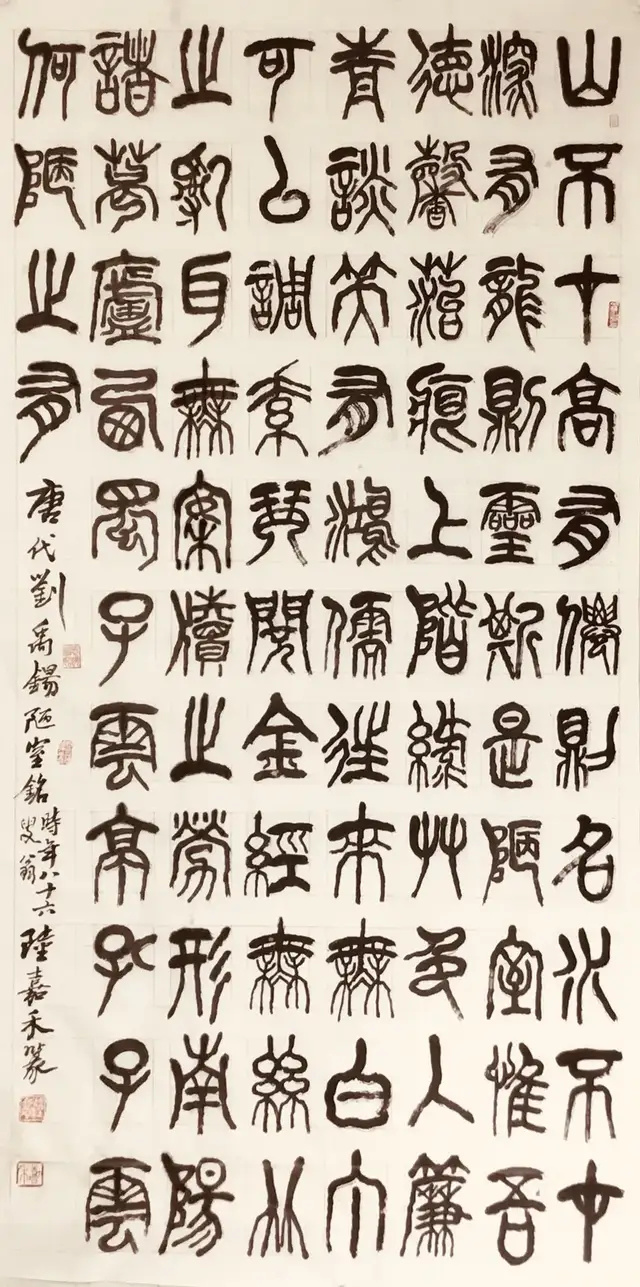 山不在高有僊則名水不在
深有龍則靈斯是陋室惟吾
德馨菭痕上階綠艸色入簾
青談笑有鴻儒往來無白丁
可以調素琴閱金經無絲竹
之亂耳無案牘之勞形南陽
諸葛廬西蜀子雲亭孔子雲
何陋之有
唐代劉禹錫陋室銘
時年八十六
叟翁
陸嘉禾篆